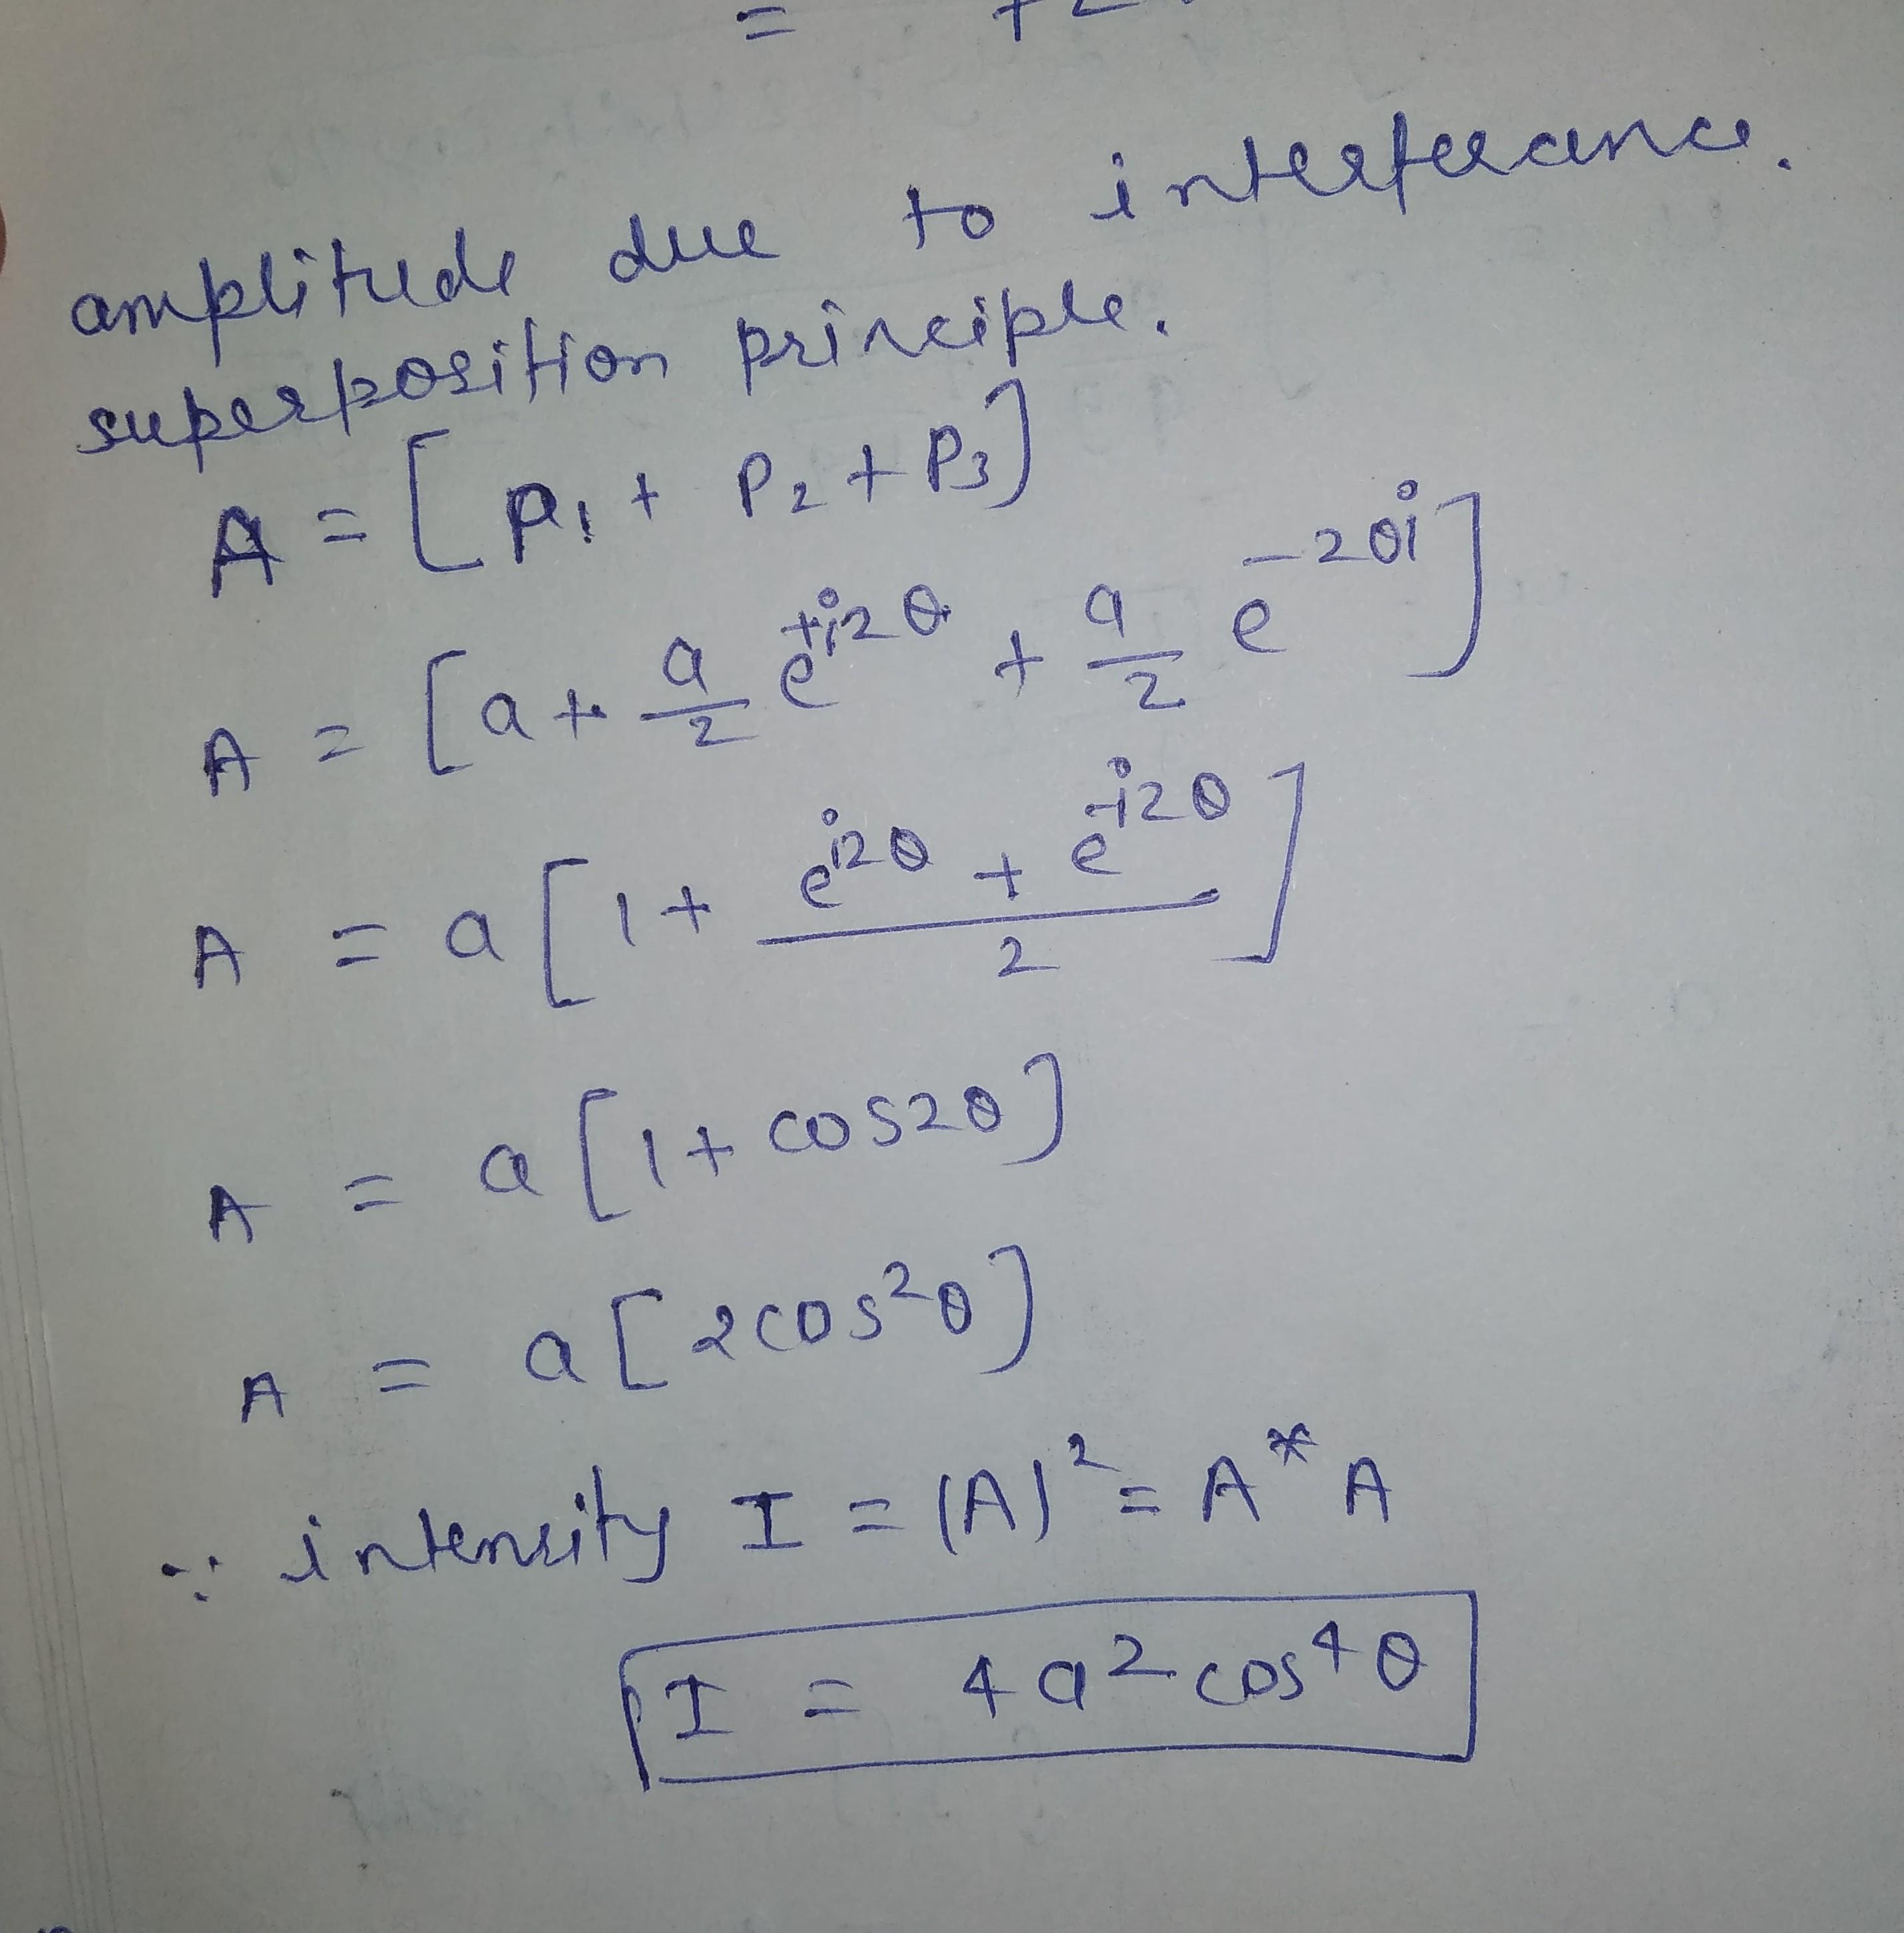 =
amplitude due to interferance.
superposition principle.
A = [P₁ + P₂ + P₃]
A = [a + a/2 e^{+i2θ} + a/2 e^{-2θi}]
A = a[1 + (e^{i2θ} + e^{-i2θ})/2]
A = a[1 + cos2θ]
A = a[2cos²θ]
∵ intensity I = (A)² = A*A
I = 4a²cos⁴θ